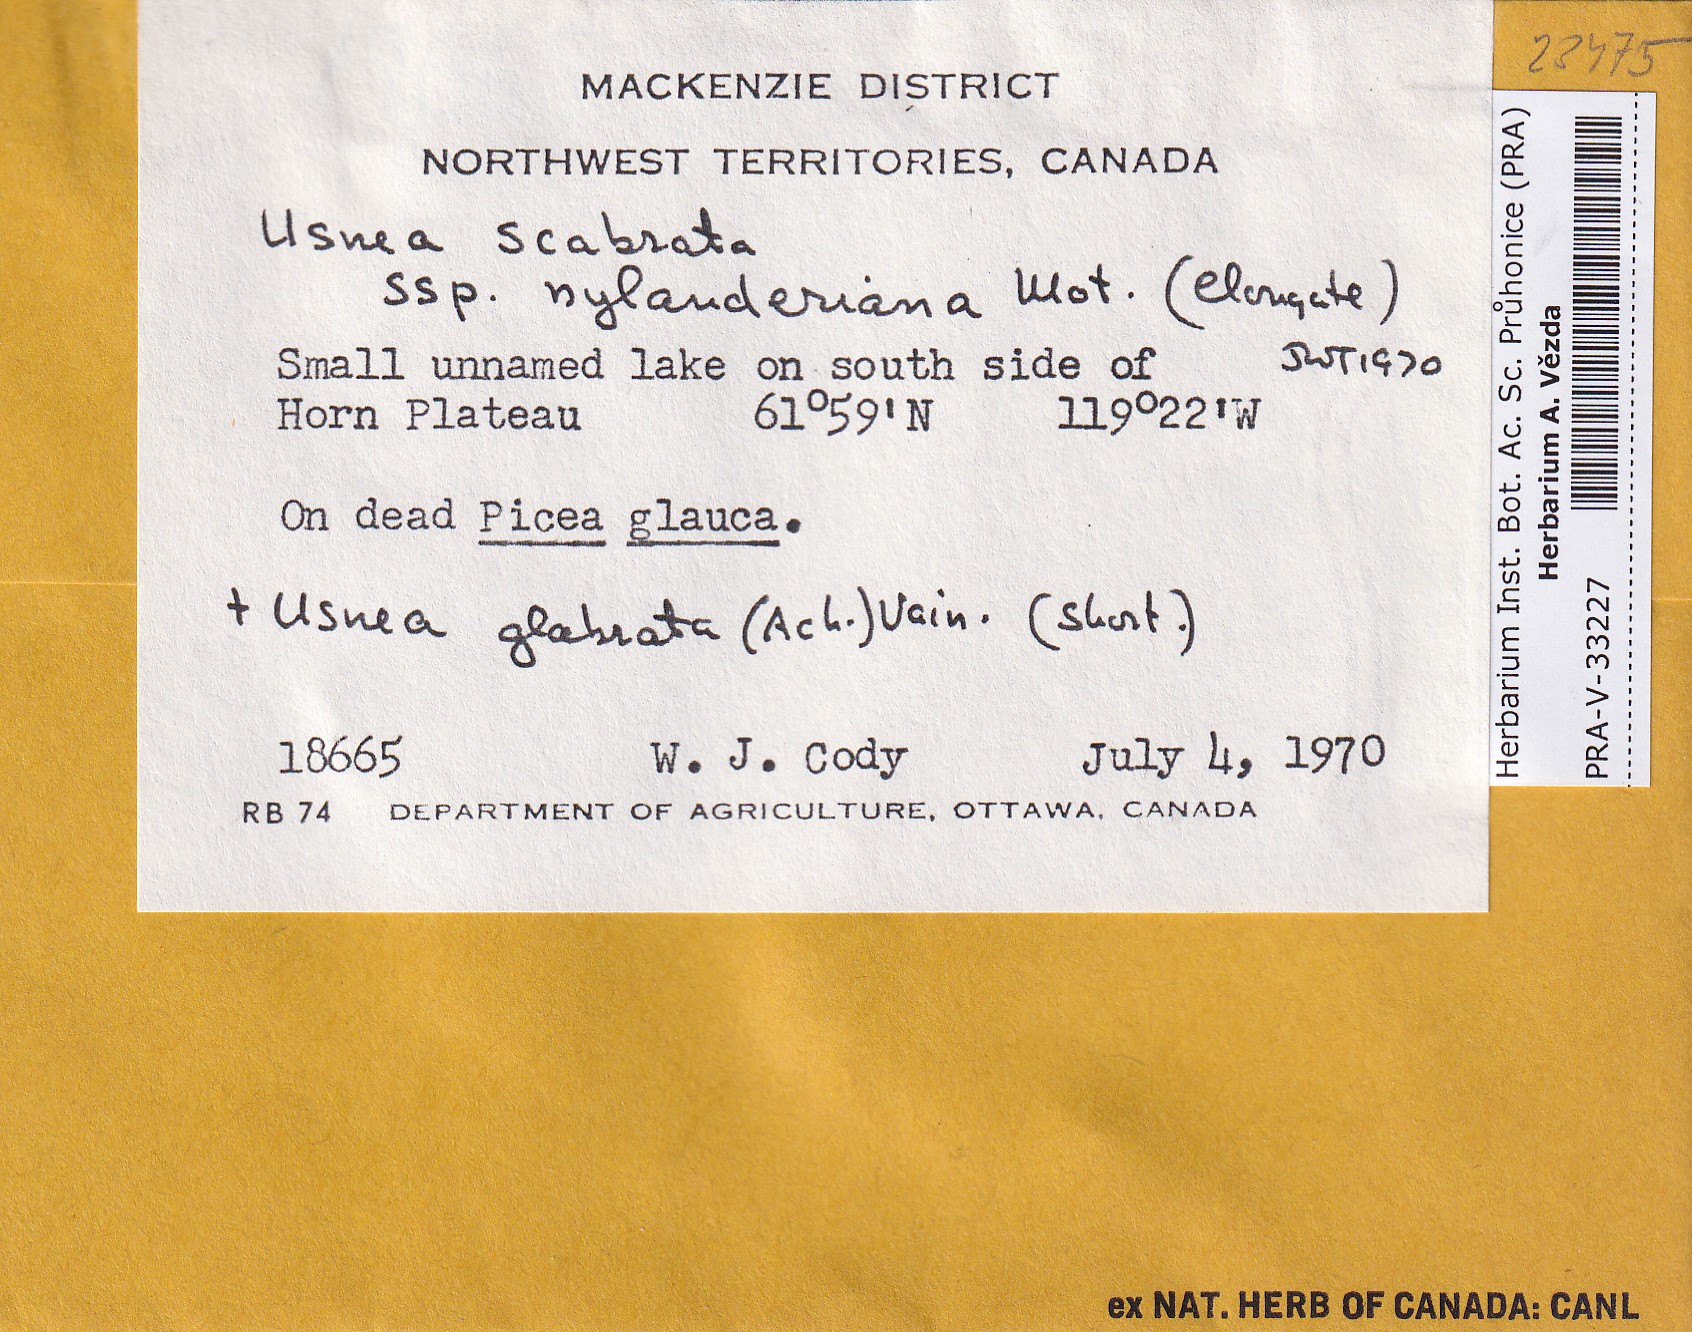 MACKENZIE DISTRICT
NORTHWEST TERRITORIES, CANADA
Usnea scabrata
ssp. nylanderiana Mot. (elongate)
Small unnamed lake on south side of JWT1970
Horn Plateau 61°59'N 119°22'W
On dead Picea glauca.
+ Usnea glabrata (Ach.) Vain. (short.)
18665 W. J. Cody July 4, 1970
RB 74 DEPARTMENT OF AGRICULTURE, OTTAWA, CANADA
23475
Herbarium Inst. Bot. Ac. Sc. Průhonice (PRA)
Herbarium A. Vězda
PRA-V-33227
ex NAT. HERB OF CANADA: CANL